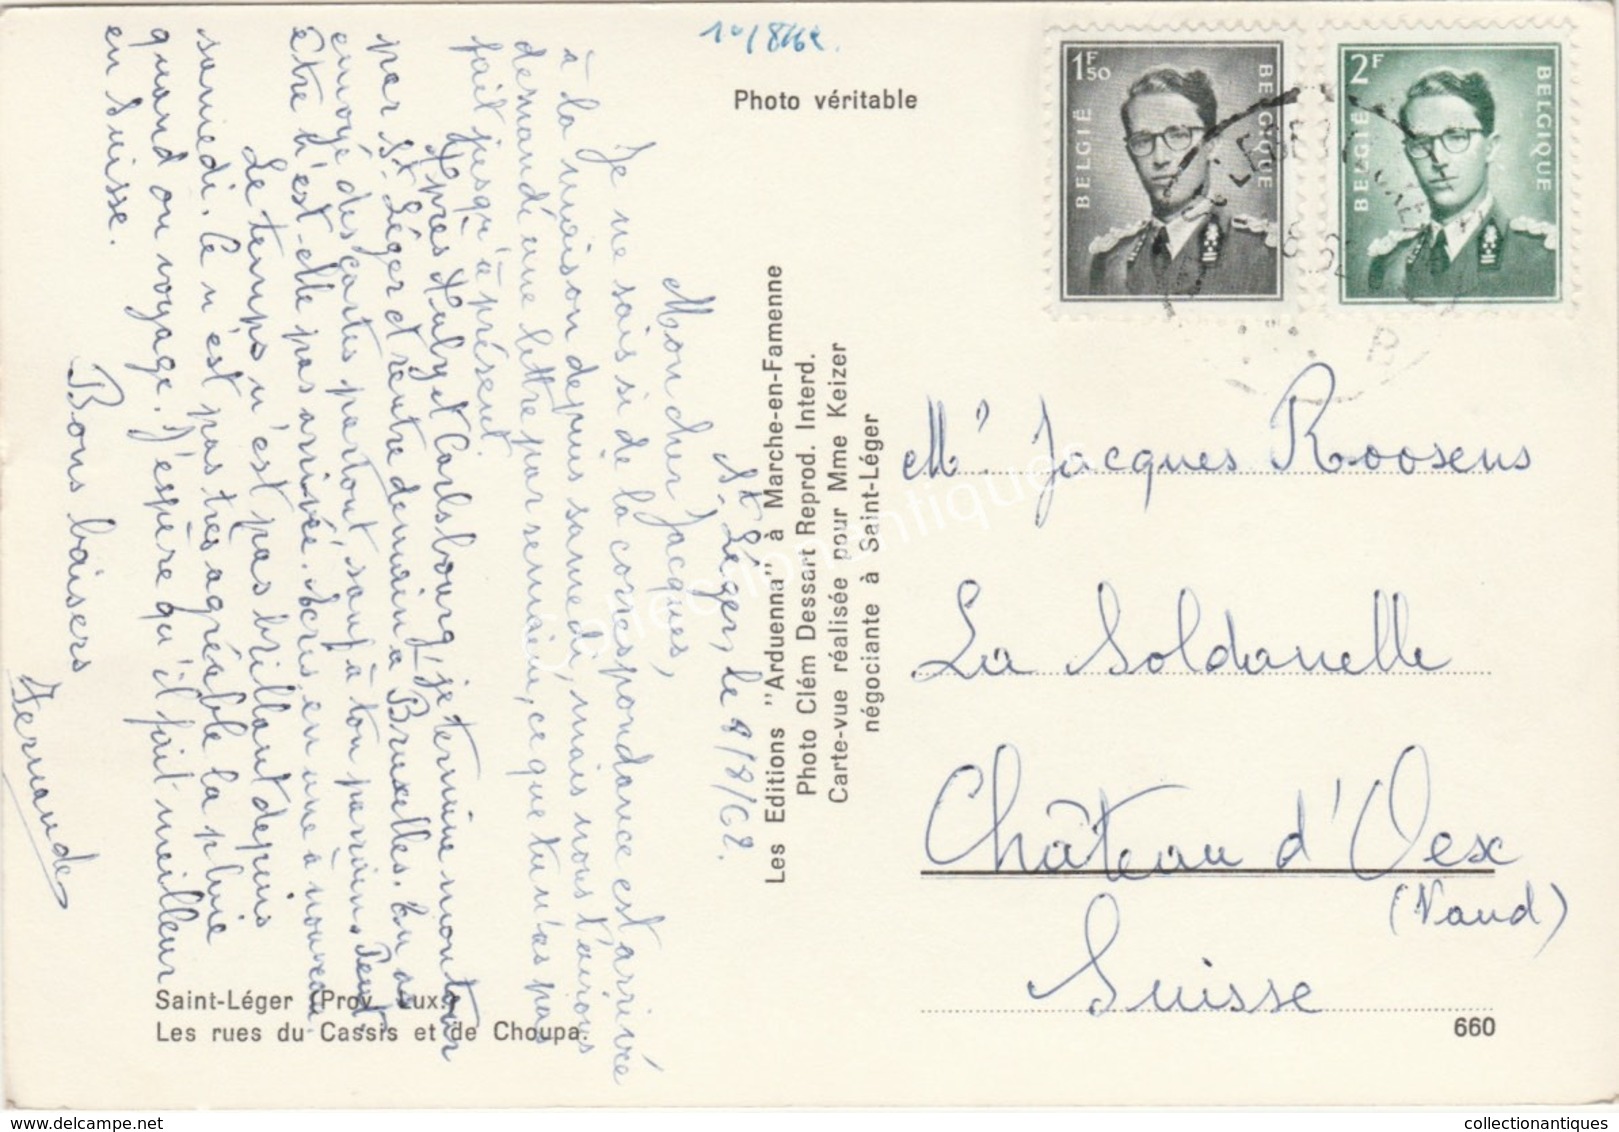 10/8/62.
Photo véritable
1F50
BELGIË
BELGIQUE
2F
BELGIË
BELGIQUE
St Léger, le 8/8/62.
Mon cher Jacques,
Je ne sais si de la correspondance est arrivée
à la maison depuis samedi, mais nous t'avions
demandé une lettre par semaine, ce que tu n'as pas
fait jusqu'à présent.
Après Huby et Carlsbourg, je termine mon tour
par St Léger et rentre demain à Bruxelles. Tu as
envoyé des cartes partout, sauf à ton parrain. Peut
être n'est-elle pas arrivée. Ecris en une à nouveau.
Le temps n'est pas brillant depuis
samedi. Ce n'est pas très agréable la pluie
quand on voyage. J'espère qu'il fait meilleur
en Suisse.
Bons baisers
Fernande
Les Editions "Arduenna" à Marche-en-Famenne
Photo Clém Dessart Reprod. Interd.
Carte-vue réalisée pour Mme Keizer
négociante à Saint-Léger
Mr Jacques Roosens
La Soldanelle
Château d'Oex
(Vaud)
Suisse
Saint-Léger (Prov. Lux.)
Les rues du Cassis et de Choupa.
660
Collectionantiques
collectionantiques